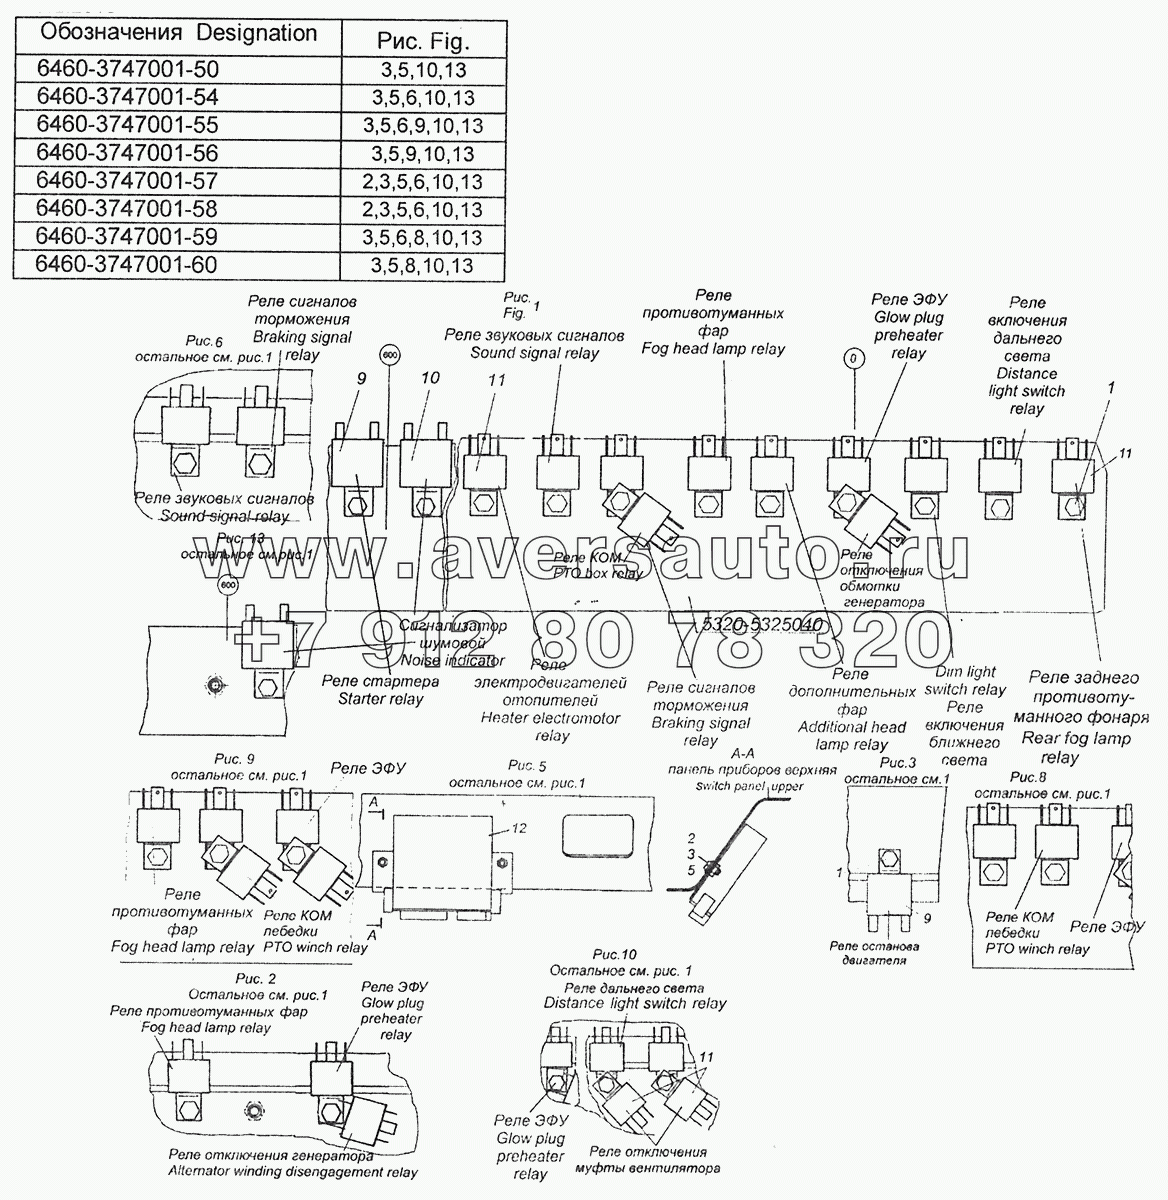 Обозначения Designation
Рис. Fig.
6460-3747001-50
3,5,10,13
6460-3747001-54
3,5,6,10,13
6460-3747001-55
3,5,6,9,10,13
6460-3747001-56
3,5,9,10,13
6460-3747001-57
2,3,5,6,10,13
6460-3747001-58
2,3,5,6,10,13
6460-3747001-59
3,5,6,8,10,13
6460-3747001-60
3,5,8,10,13
Рис.6
остальное см. рис.1
Реле сигналов
торможения
Braking signal
relay
Реле звуковых сигналов
Sound signal relay
Рис. 1
Fig.
Реле звуковых сигналов
Sound signal relay
Реле
противотуманных
фар
Fog head lamp relay
Реле ЭФУ
Glow plug
preheater
relay
Реле
включения
дальнего
света
Distance
light switch
relay
600
0
9
10
11
1
11
Рис. 13
остальное см.рис.1
600
www.aversauto.ru
+7 912 80 78 320
Реле КОМ
PTO box relay
Реле
отключения
обмотки
генератора
5320-5325040
Сигнализатор
шумовой
Noise indicator
Реле стартера
Starter relay
Реле
электродвигателей
отопителей
Heater electromotor
relay
Реле сигналов
торможения
Braking signal
relay
Реле
дополнительных
фар
Additional head
lamp relay
Dim light
switch relay
Реле
включения
ближнего
света
Реле заднего
противоту-
манного фонаря
Rear fog lamp
relay
Рис. 9
остальное см. рис.1
Реле ЭФУ
Реле
противотуманных
фар
Fog head lamp relay
Реле КОМ
лебедки
PTO winch relay
Рис. 5
остальное см. рис.1
А
А
12
А-А
панель приборов верхняя
Switch panel upper
2
3
5
Рис.3
остальное см.1
1
9
Реле останова
двигателя
Рис.8
остальное см. рис.1
Реле КОМ
лебедки
PTO winch relay
Реле ЭФУ
Рис. 2
Остальное см. рис.1
Реле противотуманных фар
Fog head lamp relay
Реле ЭФУ
Glow plug
preheater
relay
Реле отключения генератора
Alternator winding disengagement relay
Рис.10
Остальное см. рис. 1
Реле дальнего света
Distance light switch relay
11
Реле ЭФУ
Glow plug
preheater
relay
Реле отключения
муфты вентилятора